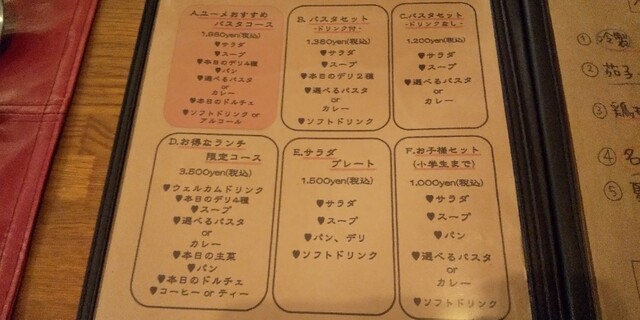 A.ユーメおすすめ
パスタコース
1,980yen(税込)
♥サラダ
♥スープ
♥本日のデリ4種
♥パン
♥選べるパスタ
or
カレー
♥本日のドルチェ
♥ソフトドリンク or
アルコール
B.パスタセット
-ドリンク付-
1,380yen(税込)
♥サラダ
♥スープ
♥本日のデリ2種
♥選べるパスタ
or
カレー
♥ソフトドリンク
C.パスタセット
-ドリンクなし-
1,200yen(税込)
♥サラダ
♥スープ
♥選べるパスタ
or
カレー
D.お得なランチ
限定コース
3,500yen(税込)
♥ウェルカムドリンク
♥本日のデリ4種
♥スープ
♥選べるパスタ
or
カレー
♥本日の主菜
♥パン
♥本日のドルチェ
♥コーヒー or ティー
E.サラダ
プレート
1,500yen(税込)
♥サラダ
♥スープ
♥パン、デリ
♥ソフトドリンク
F.お子様セット
(小学生まで)
1,000yen(税込)
♥サラダ
♥スープ
♥パン
♥選べるパスタ
or
カレー
♥ソフトドリンク
① 冷製
② 茄子
③ 鶏
④
⑤